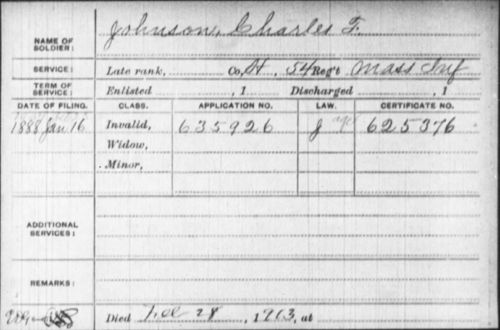 NAME OF SOLDIER: Johnson, Charles F.
SERVICE: Late rank, Co. H, 54 Reg't Mass Inf
TERM OF SERVICE: Enlisted , 1 Discharged , 1
DATE OF FILING. CLASS. APPLICATION NO. LAW. CERTIFICATE NO.
1888 Jan 16 Invalid, 635926 J 625376
Widow,
Minor,
ADDITIONAL SERVICES:
REMARKS:
Died Dec 28, 1913, at